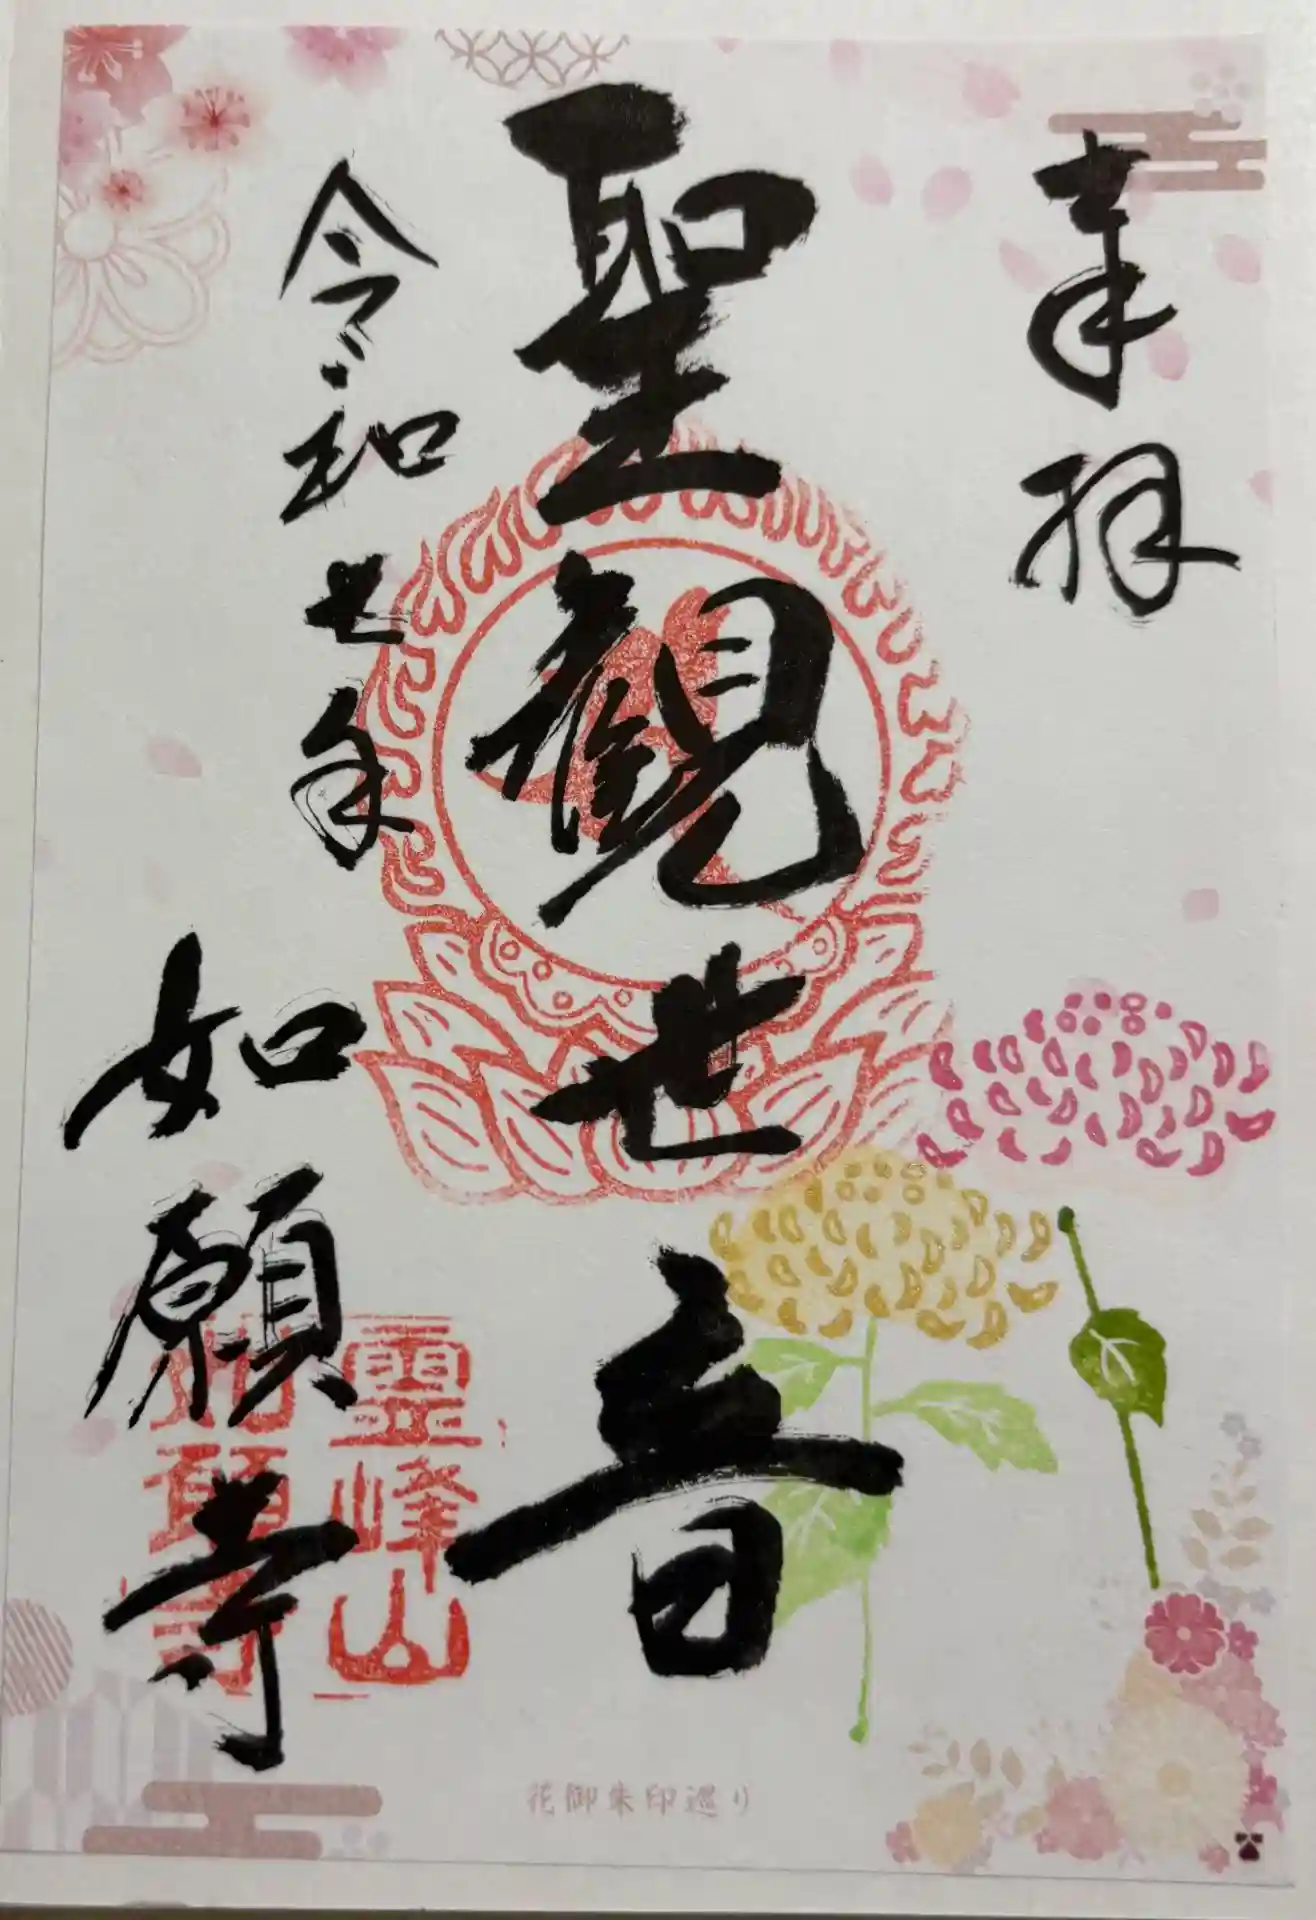 奉拝
聖観世音
令和七年
如願寺
靈峰山
如願寺
花御朱印巡り